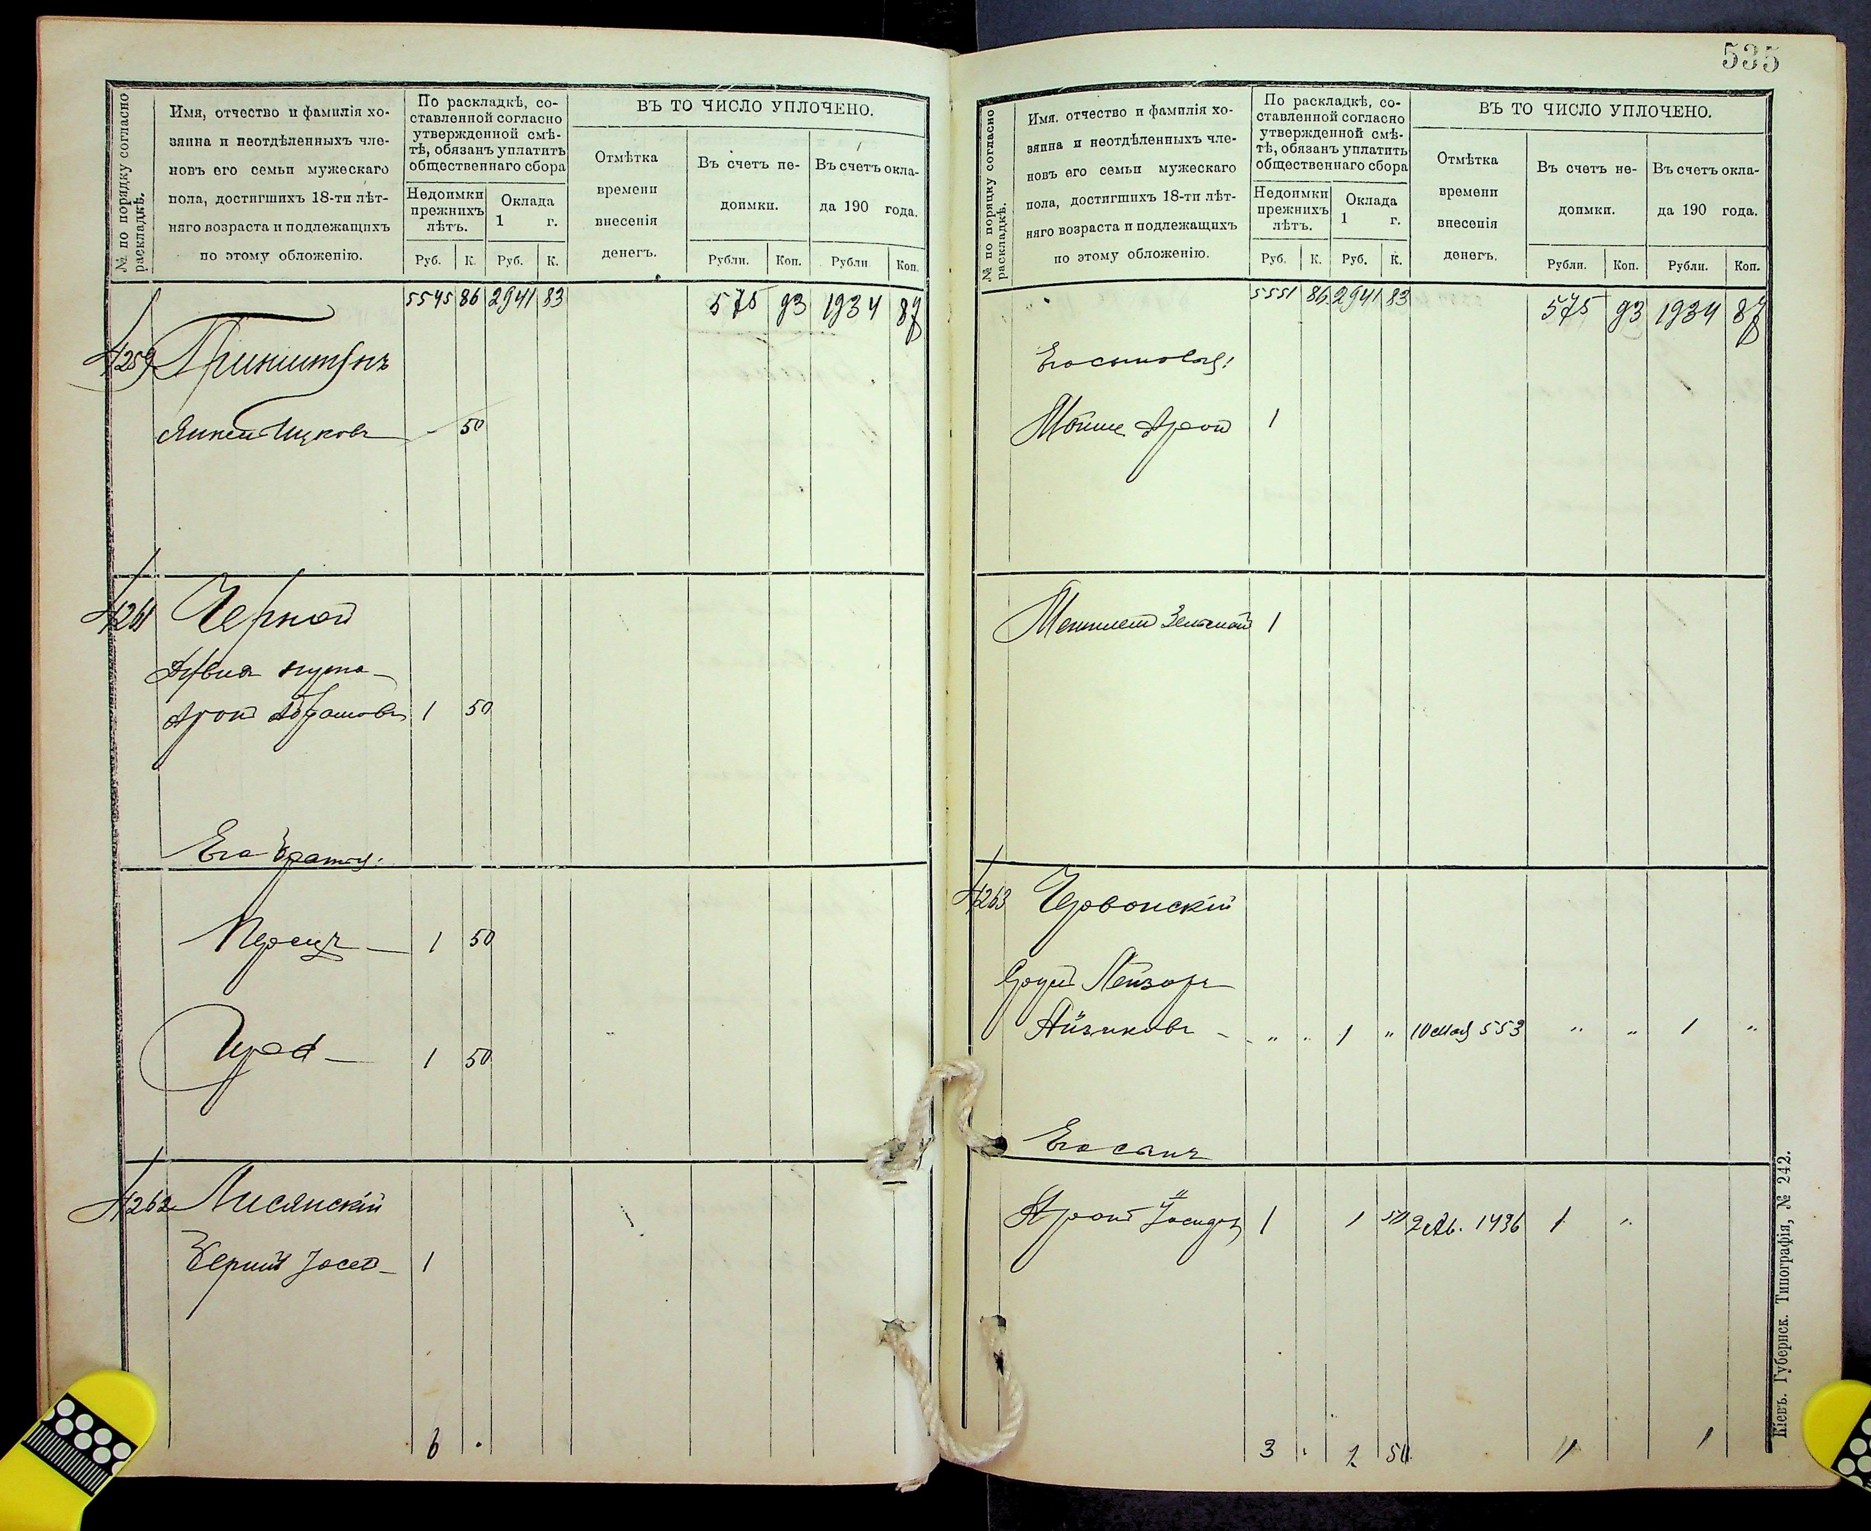 № по порядку согласно раскладкѣ.
Имя, отчество и фамилія хо-
зяина и неотдѣленныхъ чле-
новъ его семьи мужескаго
пола, достигшихъ 18-ти лѣт-
няго возраста и подлежащихъ
по этому обложенію.
По раскладкѣ, со-
ставленной согласно
утвержденной смѣ-
тѣ, обязанъ уплатить
общественнаго сбора
Недоимки прежнихъ лѣтъ.
Оклада 1 г.
Руб. К. Руб. К.
ВЪ ТО ЧИСЛО УПЛОЧЕНО.
Отмѣтка времени внесенія денегъ.
Въ счетъ не-
доимки.
Въ счетъ окла-
да 190 года.
Рубли. Коп. Рубли. Коп.
5545 86 2941 83 575 93 1934 87
4259 Гринштейнъ
Янкель Ицковъ 50
4261 Черной
Арон Абрамовъ 1 50
Его братья:
Персиц 1 50
1 50
4262 Лисянскій
Іосев 1
6
535
№ по порядку согласно раскладкѣ.
Имя. отчество и фамилія хо-
зяина и неотдѣленныхъ чле-
новъ его семьи мужескаго
пола, достигшихъ 18-ти лѣт-
няго возраста и подлежащихъ
по этому обложенію.
По раскладкѣ, со-
ставленной согласно
утвержденной смѣ-
тѣ, обязанъ уплатить
общественнаго сбора
Недоимки прежнихъ лѣтъ.
Оклада 1 г.
Руб. К. Руб. К.
ВЪ ТО ЧИСЛО УПЛОЧЕНО.
Отмѣтка времени внесенія денегъ.
Въ счетъ не-
доимки.
Въ счетъ окла-
да 190 года.
Рубли. Коп. Рубли. Коп.
5551 86 2941 83 575 93 1934 87
Его сыновья:
Мошке Арон 1
1
4263 Червонскій
Сруль Лейзоръ
Айзиковъ - " " 1 " 10 мая 553 " " 1 "
Его сынъ
Арон 1 1 50 1436 1 "
3 50 1 1
Кіевъ. Губернск. Типографія, № 242.